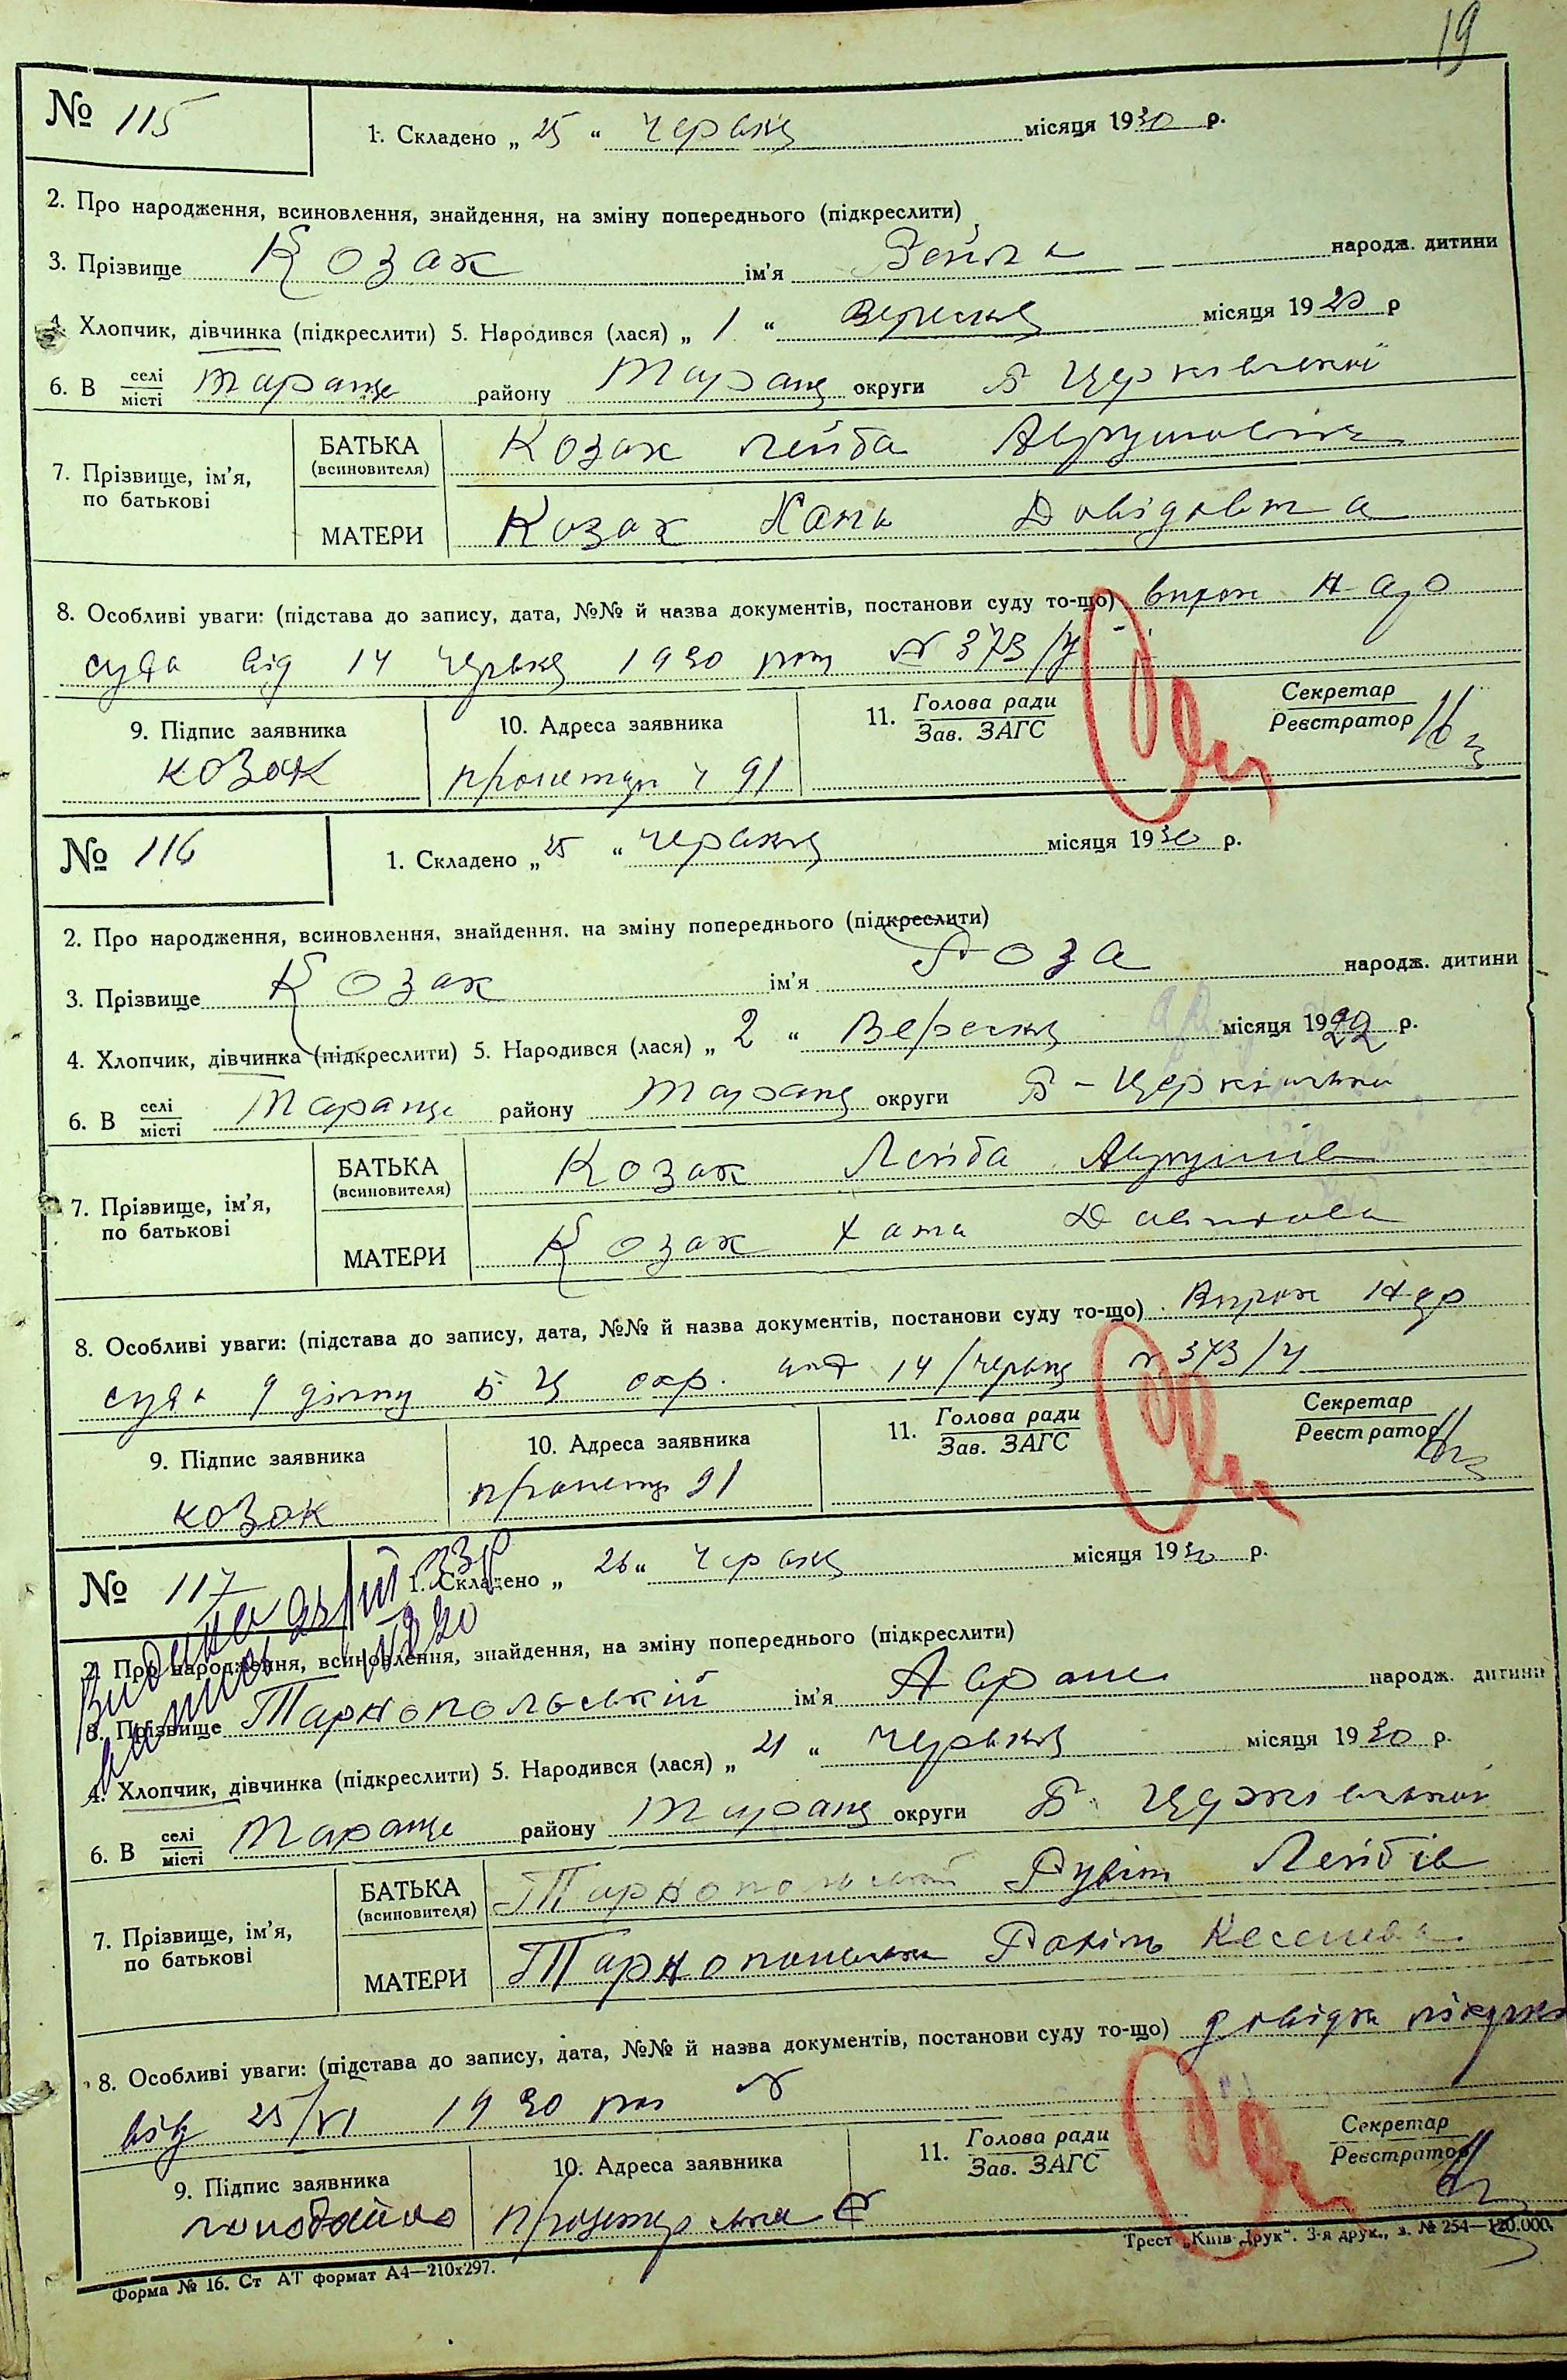 19
№ 115
1. Складено „ 25 “ червня місяця 1930 р.
2. Про народження, всиновлення, знайдення, на зміну попереднього (підкреслити)
3. Прізвище Козак ім'я Зейля народж. дитини
4. Хлопчик, дівчинка (підкреслити) 5. Народився (лася) „ 1 “ вересня місяця 1920 р
6. В селі місті Тараще району Таращ округи Б Церківській
БАТЬКА (всиновителя) Козак Лейба Аврумович
7. Прізвище, ім'я, по батькові
МАТЕРИ Козак Хана Давідовна
8. Особливі уваги: (підстава до запису, дата, №№ й назва документів, постанови суду то-що) вирок Нар
суда від 14 червня 1930 року № 373/У
9. Підпис заявника 10. Адреса заявника 11. Голова ради Зав. ЗАГС Секретар Реєстратор
козак пролетар 91
№ 116
1. Складено „ 25 “ червня місяця 1930 р.
2. Про народження, всиновлення, знайдення, на зміну попереднього (підкреслити)
3. Прізвище Козак ім'я Роза народж. дитини
4. Хлопчик, дівчинка (підкреслити) 5. Народився (лася) „ 2 “ Вересня місяця 1922 р.
6. В селі місті Тараще району Таращ округи Б-Церківській
БАТЬКА (всиновителя) Козак Лейба Аврумів
7. Прізвище, ім'я, по батькові
МАТЕРИ Козак Хана Давидова
8. Особливі уваги: (підстава до запису, дата, №№ й назва документів, постанови суду то-що) Вирок Нар
суда 9 дільну Б Ц окр. 14/червня № 373/У
9. Підпис заявника 10. Адреса заявника 11. Голова ради Зав. ЗАГС Секретар Реєстратор
козак пролетар 91
№ 117
1. Складено „ 26 “ червня місяця 1930 р.
2. Про народження, всиновлення, знайдення, на зміну попереднього (підкреслити)
3. Прізвище Тарнопольській ім'я Аврам народж. дитини
4. Хлопчик, дівчинка (підкреслити) 5. Народився (лася) „ 21 “ червня місяця 1930 р.
6. В селі місті Тараще району Таращ округи Б Церківській
БАТЬКА (всиновителя) Тарнопольській Рувін Лейбів
7. Прізвище, ім'я, по батькові
МАТЕРИ Тарнопольська Рахіль
8. Особливі уваги: (підстава до запису, дата, №№ й назва документів, постанови суду то-що) довідка лікарні
від 25/VI 1930 року №
9. Підпис заявника 10. Адреса заявника 11. Голова ради Зав. ЗАГС Секретар Реєстратор
Форма № 16. Ст АТ формат А4—210х297. Трест „Київ-Друк“. 3-я друк., з. № 254—120.000.